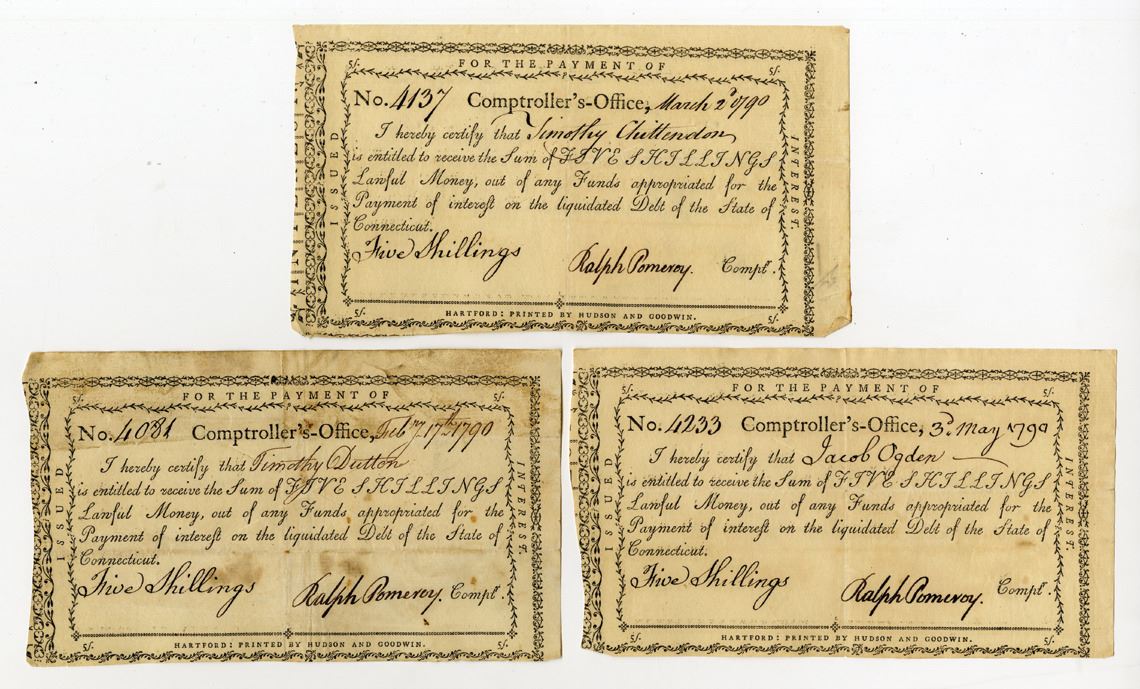 FOR THE PAYMENT OF
5/. 5/.
No. 4137 Comptroller's-Office, March 2d 1790
I hereby certify that Timothy Chittendon
is entitled to receive the Sum of FIVE SHILLINGS
Lawful Money, out of any Funds appropriated for the
Payment of interest on the liquidated Debt of the State of
Connecticut.
Five Shillings
Ralph Pomeroy. Comptr.
5/. HARTFORD: PRINTED BY HUDSON AND GOODWIN. 5/.
ISSUED
INTEREST.
5/. FOR THE PAYMENT OF 5/.
No. 4081 Comptroller's-Office, Feby 17th 1790
I hereby certify that Timothy Dutton
is entitled to receive the Sum of FIVE SHILLINGS
Lawful Money, out of any Funds appropriated for the
Payment of interest on the liquidated Debt of the State of
Connecticut.
Five Shillings
Ralph Pomeroy. Comptr.
5/. HARTFORD: PRINTED BY HUDSON AND GOODWIN. 5/.
ISSUED
INTEREST.
5/. FOR THE PAYMENT OF 5/.
No. 4233 Comptroller's-Office, 3d. May 1790
I hereby certify that Jacob Ogden
is entitled to receive the Sum of FIVE SHILLINGS
Lawful Money, out of any Funds appropriated for the
Payment of interest on the liquidated Debt of the State of
Connecticut.
Five Shillings
Ralph Pomeroy. Comptr.
5/. HARTFORD: PRINTED BY HUDSON AND GOODWIN. 5/.
ISSUED
INTEREST.